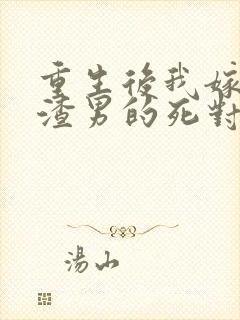 重生後我嫁
渣男的死對
湯山